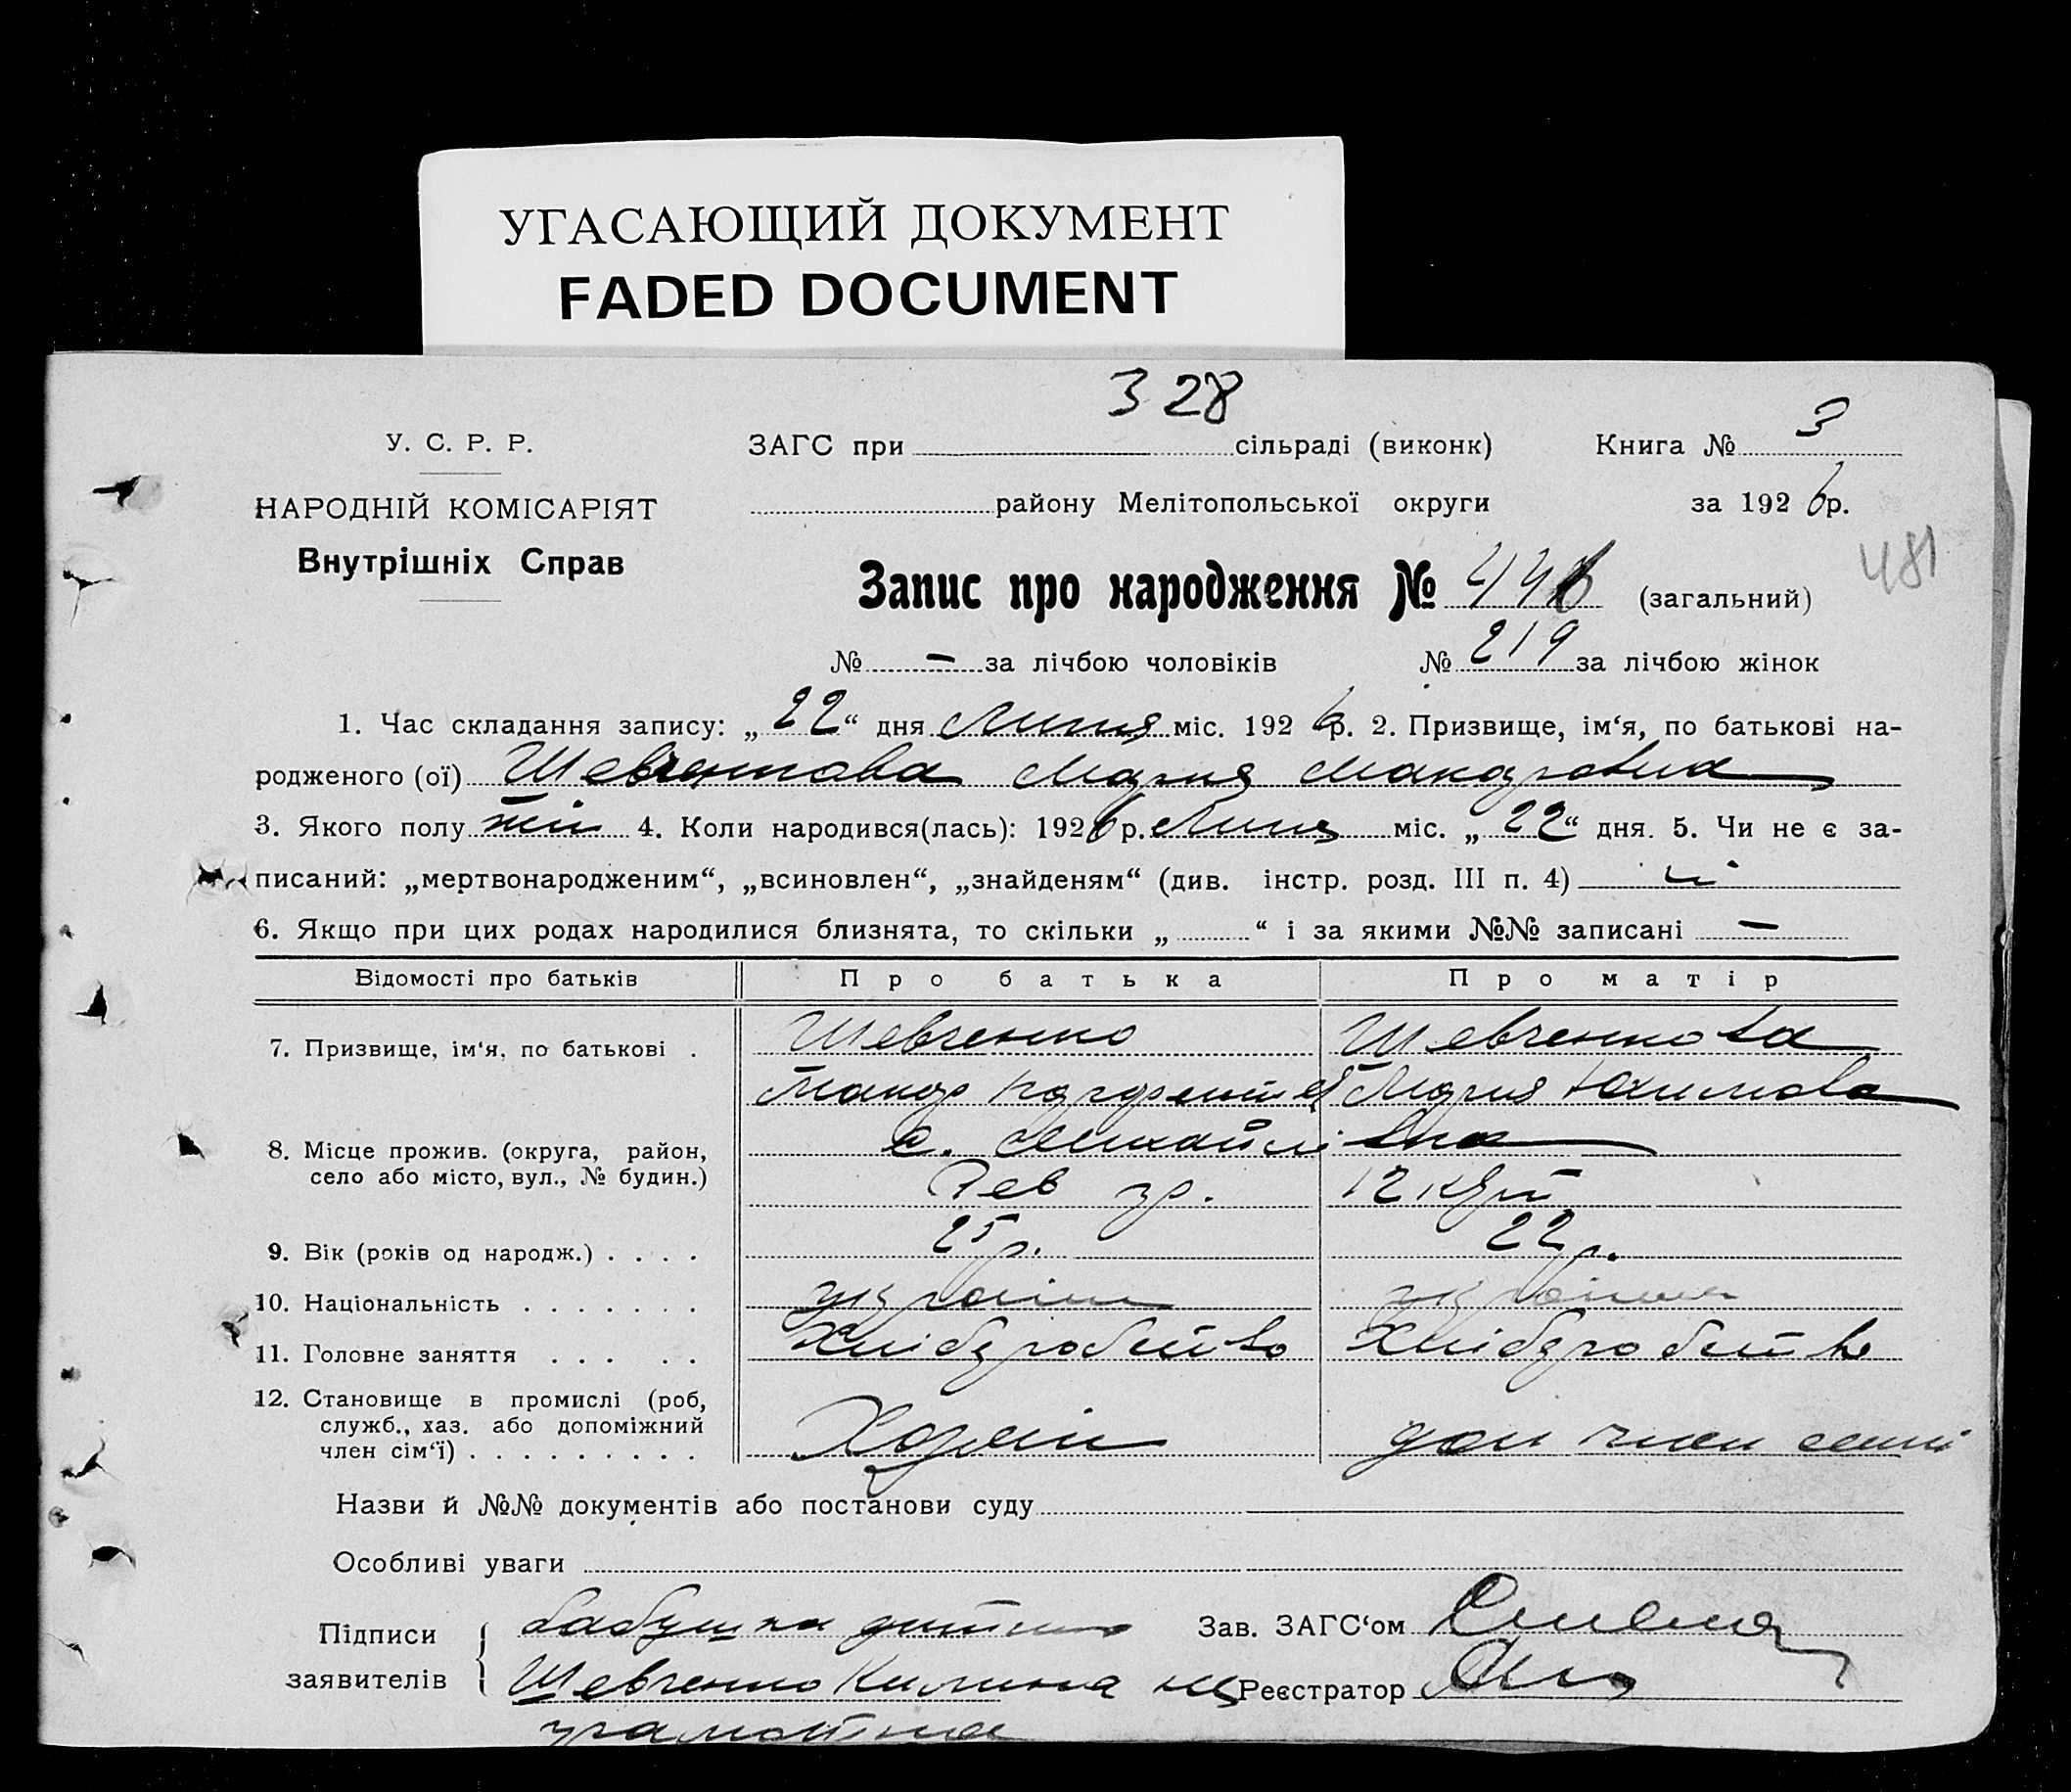 УГАСАЮЩИЙ ДОКУМЕНТ
FADED DOCUMENT
328
У. С. Р. Р.
ЗАГС при сільраді (виконк)
Книга № 3
НАРОДНІЙ КОМІСАРІЯТ
району Мелітопольської округи
за 1926р.
Внутрішніх Справ
481
Запис про народження № 446 (загальний)
№ — за лічбою чоловіків № 219 за лічбою жінок
1. Час складання запису: „22“ дня Липня міс. 1926р. 2. Призвище, ім‘я, по батькові на-
родженого (ої) Мария Макаровна
3. Якого полу жін 4. Коли народився(лась): 1926р. Липня міс. „22“ дня. 5. Чи не є за-
писаний: „мертвонародженим“, „всиновлен“, „знайденям“ (див. інстр. розд. III п. 4)
6. Якщо при цих родах народилися близнята, то скільки „ “ і за якими №№ записані —
Відомості про батьків
Про батька
Про матір
7. Призвище, ім‘я, по батькові .
Шевченко
Шевченкова
Макар
Мария Юхимова
8. Місце прожив. (округа, район,
село або місто, вул., № будин.)
с. Михайлівка
12 кут
9. Вік (років од народж.) . . . .
25 р.
22 р.
10. Національність . . . . . . .
україн
україн
11. Головне заняття . . . . .
Хліборобство
Хліборобство
12. Становище в промислі (роб,
служб., хаз. або допоміжний
член сім‘ї) . . . . . . . . .
доп член семї
Назви й №№ документів або постанови суду
Особливі уваги
Підписи
заявителів
бабушка дитини
Шевченко Килина не
грамотна
Зав. ЗАГС‘ом
Реєстратор